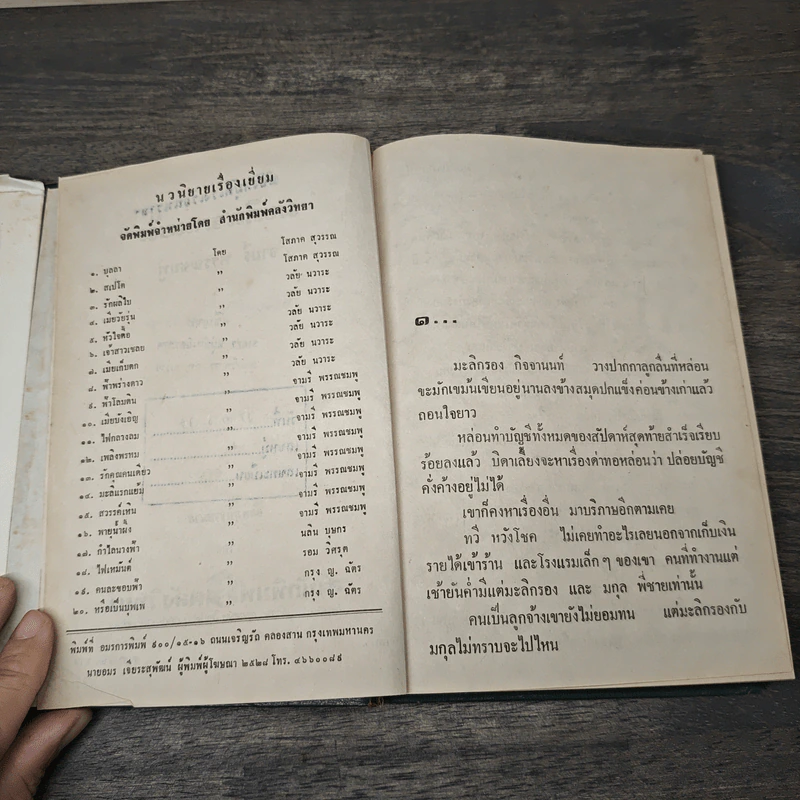 นวนิยายเรื่องเยี่ยม
จัดพิมพ์จำหน่ายโดย สำนักพิมพ์คลังวิทยา
๑. บุลลา โดย โสภาค สุวรรณ
๒. สเปโต ” โสภาค สุวรรณ
๓. รักผลิใบ ” วลัย นวาระ
๔. เมียวัยรุ่น ” วลัย นวาระ
๕. หัวใจดื้อ ” วลัย นวาระ
๖. เจ้าสาวเชลย ” วลัย นวาระ
๗. เมียเก็บตก ” วลัย นวาระ
๘. ฟ้าพร่างดาว ” จามรี พรรณชมพู
๙. ฟ้าโลมดิน ” จามรี พรรณชมพู
๑๐. เมียบังเอิญ ” จามรี พรรณชมพู
๑๑. ไฟกลางลม ” จามรี พรรณชมพู
๑๒. เพลิงพรหม ” จามรี พรรณชมพู
๑๓. รักคุณคนเดียว ” จามรี พรรณชมพู
๑๔. มะลิแรกแย้ม ” จามรี พรรณชมพู
๑๕. สวรรค์เหิน ” จามรี พรรณชมพู
๑๖. พายุน้ำผึ้ง ” นลิน บุษกร
๑๗. กำไลนางฟ้า ” รอม วิศรุต
๑๘. ไฟเหมันต์ ” กรุง ญ. ฉัตร
๑๙. คนละขอบฟ้า ” กรุง ญ. ฉัตร
๒๐. หรือเป็นบุพเพ ” กรุง ญ. ฉัตร
พิมพ์ที่ อมรการพิมพ์ ๙๐๐/๑๕-๑๖ ถนนเจริญรัถ คลองสาน กรุงเทพมหานคร
นายอมร เจียระสุพัฒน์ ผู้พิมพ์ผู้โฆษณา ๒๕๒๘ โทร. ๔๖๖๐๐๘๙
๑...
มะลิกรอง กิจจานนท์ วางปากกาลูกลื่นที่หล่อน
ขะมักเขม้นเขียนอยู่นานลงข้างสมุดปกแข็งค่อนข้างเก่าแล้ว
ถอนใจยาว
หล่อนทำบัญชีทั้งหมดของสัปดาห์สุดท้ายสำเร็จเรียบ
ร้อยลงแล้ว บิดาเลี้ยงจะหาเรื่องด่าทอหล่อนว่า ปล่อยบัญชี
คั่งค้างอยู่ไม่ได้
เขาก็คงหาเรื่องอื่น มาบริภาษอีกตามเคย
ทวี หวังโชค ไม่เคยทำอะไรเลยนอกจากเก็บเงิน
รายได้เข้าร้าน และโรงแรมเล็กๆ ของเขา คนที่ทำงานแต่
เช้ายันค่ำมีแต่มะลิกรอง และ มกุล พี่ชายเท่านั้น
คนเป็นลูกจ้างเขายังไม่ยอมทน แต่มะลิกรองกับ
มกุลไม่ทราบจะไปไหน